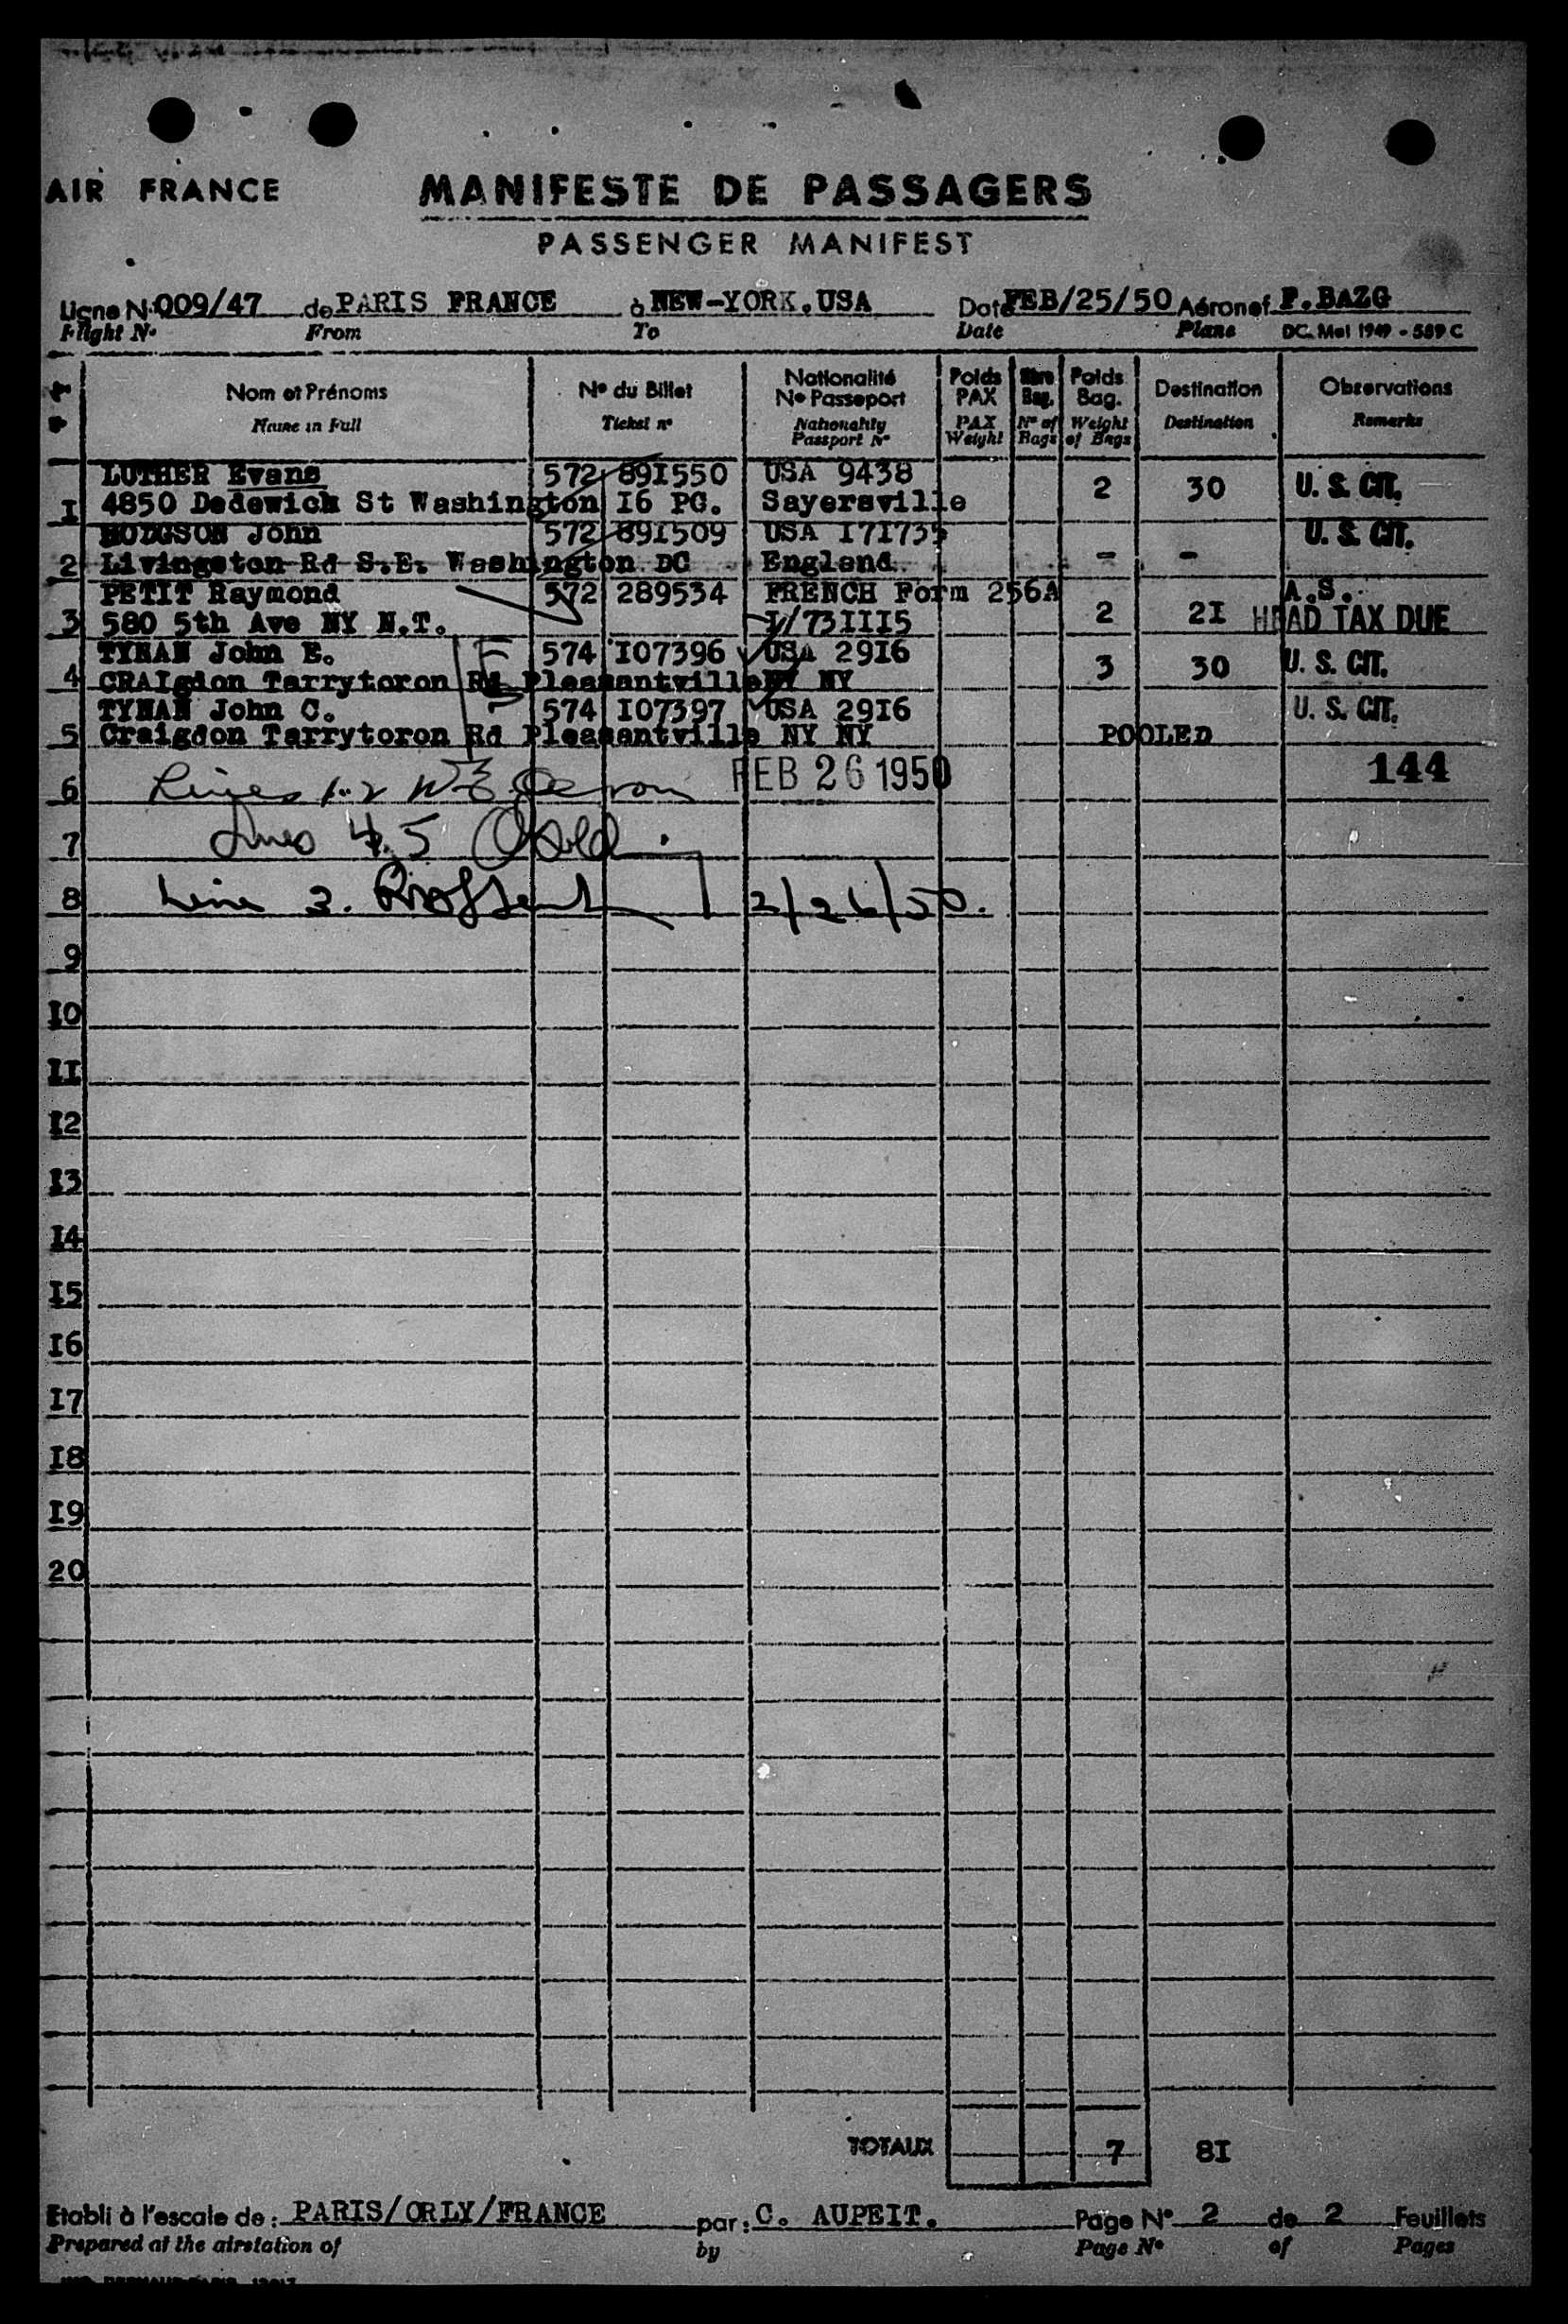 AIR FRANCE
MANIFESTE DE PASSAGERS
PASSENGER MANIFEST
Ligne N° 009/47 de PARIS FRANCE à NEW-YORK.USA Date FEB/25/50 Aéronef F.BAZG
Flight N° From To Date Plane DC. Mel 1949 - 589 C
Nom et Prénoms N° du Billet Nationalité N° Passeport Poids PAX Nbre Bag. Poids Bag. Destination Observations
Name in Full Ticket n° Nationality Passport N° PAX Weight N° of Bags Weight of Bags Destination Remarks
LUTHER Evans 572 891550 USA 9438
1 4850 Dedewich St Washington I6 PC. Sayersville 2 30 U. S. CIT.
HODGSON John 572 891509 USA I7I735 U. S. CIT.
2 Livingston Rd S.E. Washington DC England. - -
PETIT Raymond 572 289534 FRENCH Form 256A A.S.
3 580 5th Ave NY N.T. I/73III5 2 2I HEAD TAX DUE
TYNAN John E. 574 I07396 USA 29I6
4 CRAIgdon Tarrytoron Rd Pleasantville NY NY 3 30 U. S. CIT.
TYNAN John C. 574 I07397 USA 29I6 U. S. CIT.
5 Craigdon Tarrytoron Rd Pleasantville NY NY POOLED
6 Lines 1-2 FEB 26 1950 144
7 Lines 4.5
8 Line 3. 2/26/50.
9
I0
II
I2
I3
I4
I5
I6
I7
I8
I9
20
TOTAUX 7 8I
Etabli à l'escale de : PARIS/ORLY/FRANCE par : C. AUPEIT. Page N° 2 de 2 Feuillets
Prepared at the airstation of by Page N° of Pages